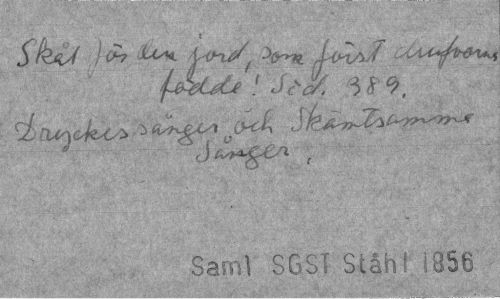 Skål för den jord, som först drufvorna
födde! Sid. 389.
Dryckessånger och Skämtsamma
Sånger.
Saml SGST Ståhl 1856